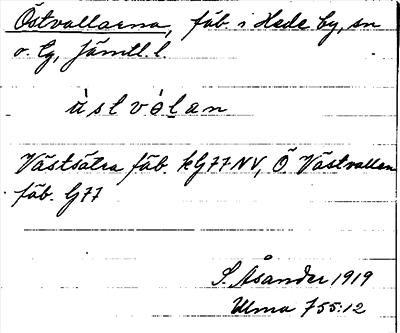 Östvallarna, fäb. i Hede by, sn
o. tg, Jämtl. l.
ùstvàḷan
Västsätra fäb. kG77NV, Ö Västvallen
fäb. G77
S. Åsander 1919
Ulma 755:12